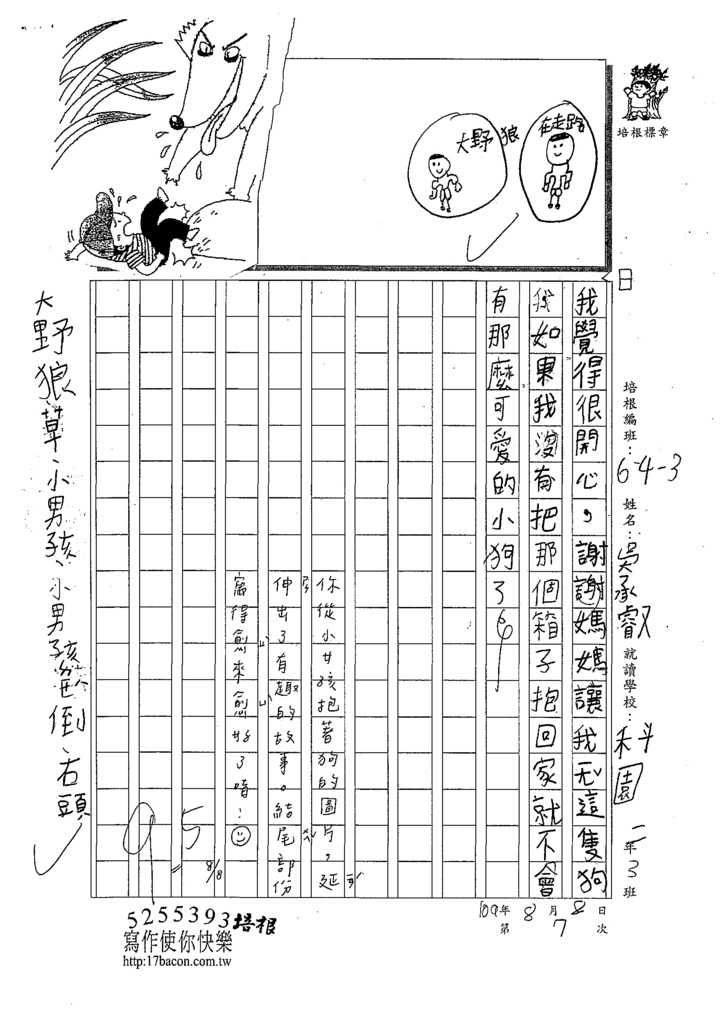 培根標章
大野狼
在走路
日
培根編班：64-3 姓名：吳承叡 就讀學校：科園 二年3班
我覺得很開心，謝謝媽媽讓我  這隻狗
我如果我沒有把那個箱子抱回家就不會
有那麼可愛的小狗了
你從小女孩抱著狗的圖片，延
伸出了有趣的故事。結尾部份
寫得愈來愈好了唷！
95
8/8
大野狼、草、小男孩、小男孩 倒、石頭
109年8月8日
第7次
5255393培根
寫作使你快樂
http:17bacon.com.tw